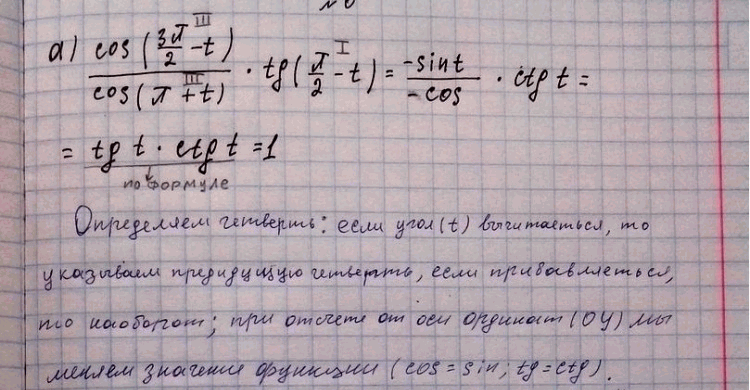 а) cos(3π/2 - t) III / cos(π + t) III · tg(π/2 - t) I = -sin t / -cos · ctg t =
= tg t · ctg t = 1
по формуле
Определяем четверть: если угол (t) вычитаеться, то
указываем предидущую четверть, если прибавляеться,
то наоборот; при отсчете от оси ординат (OY) мы
меняем значение функции (cos = sin; tg = ctg).